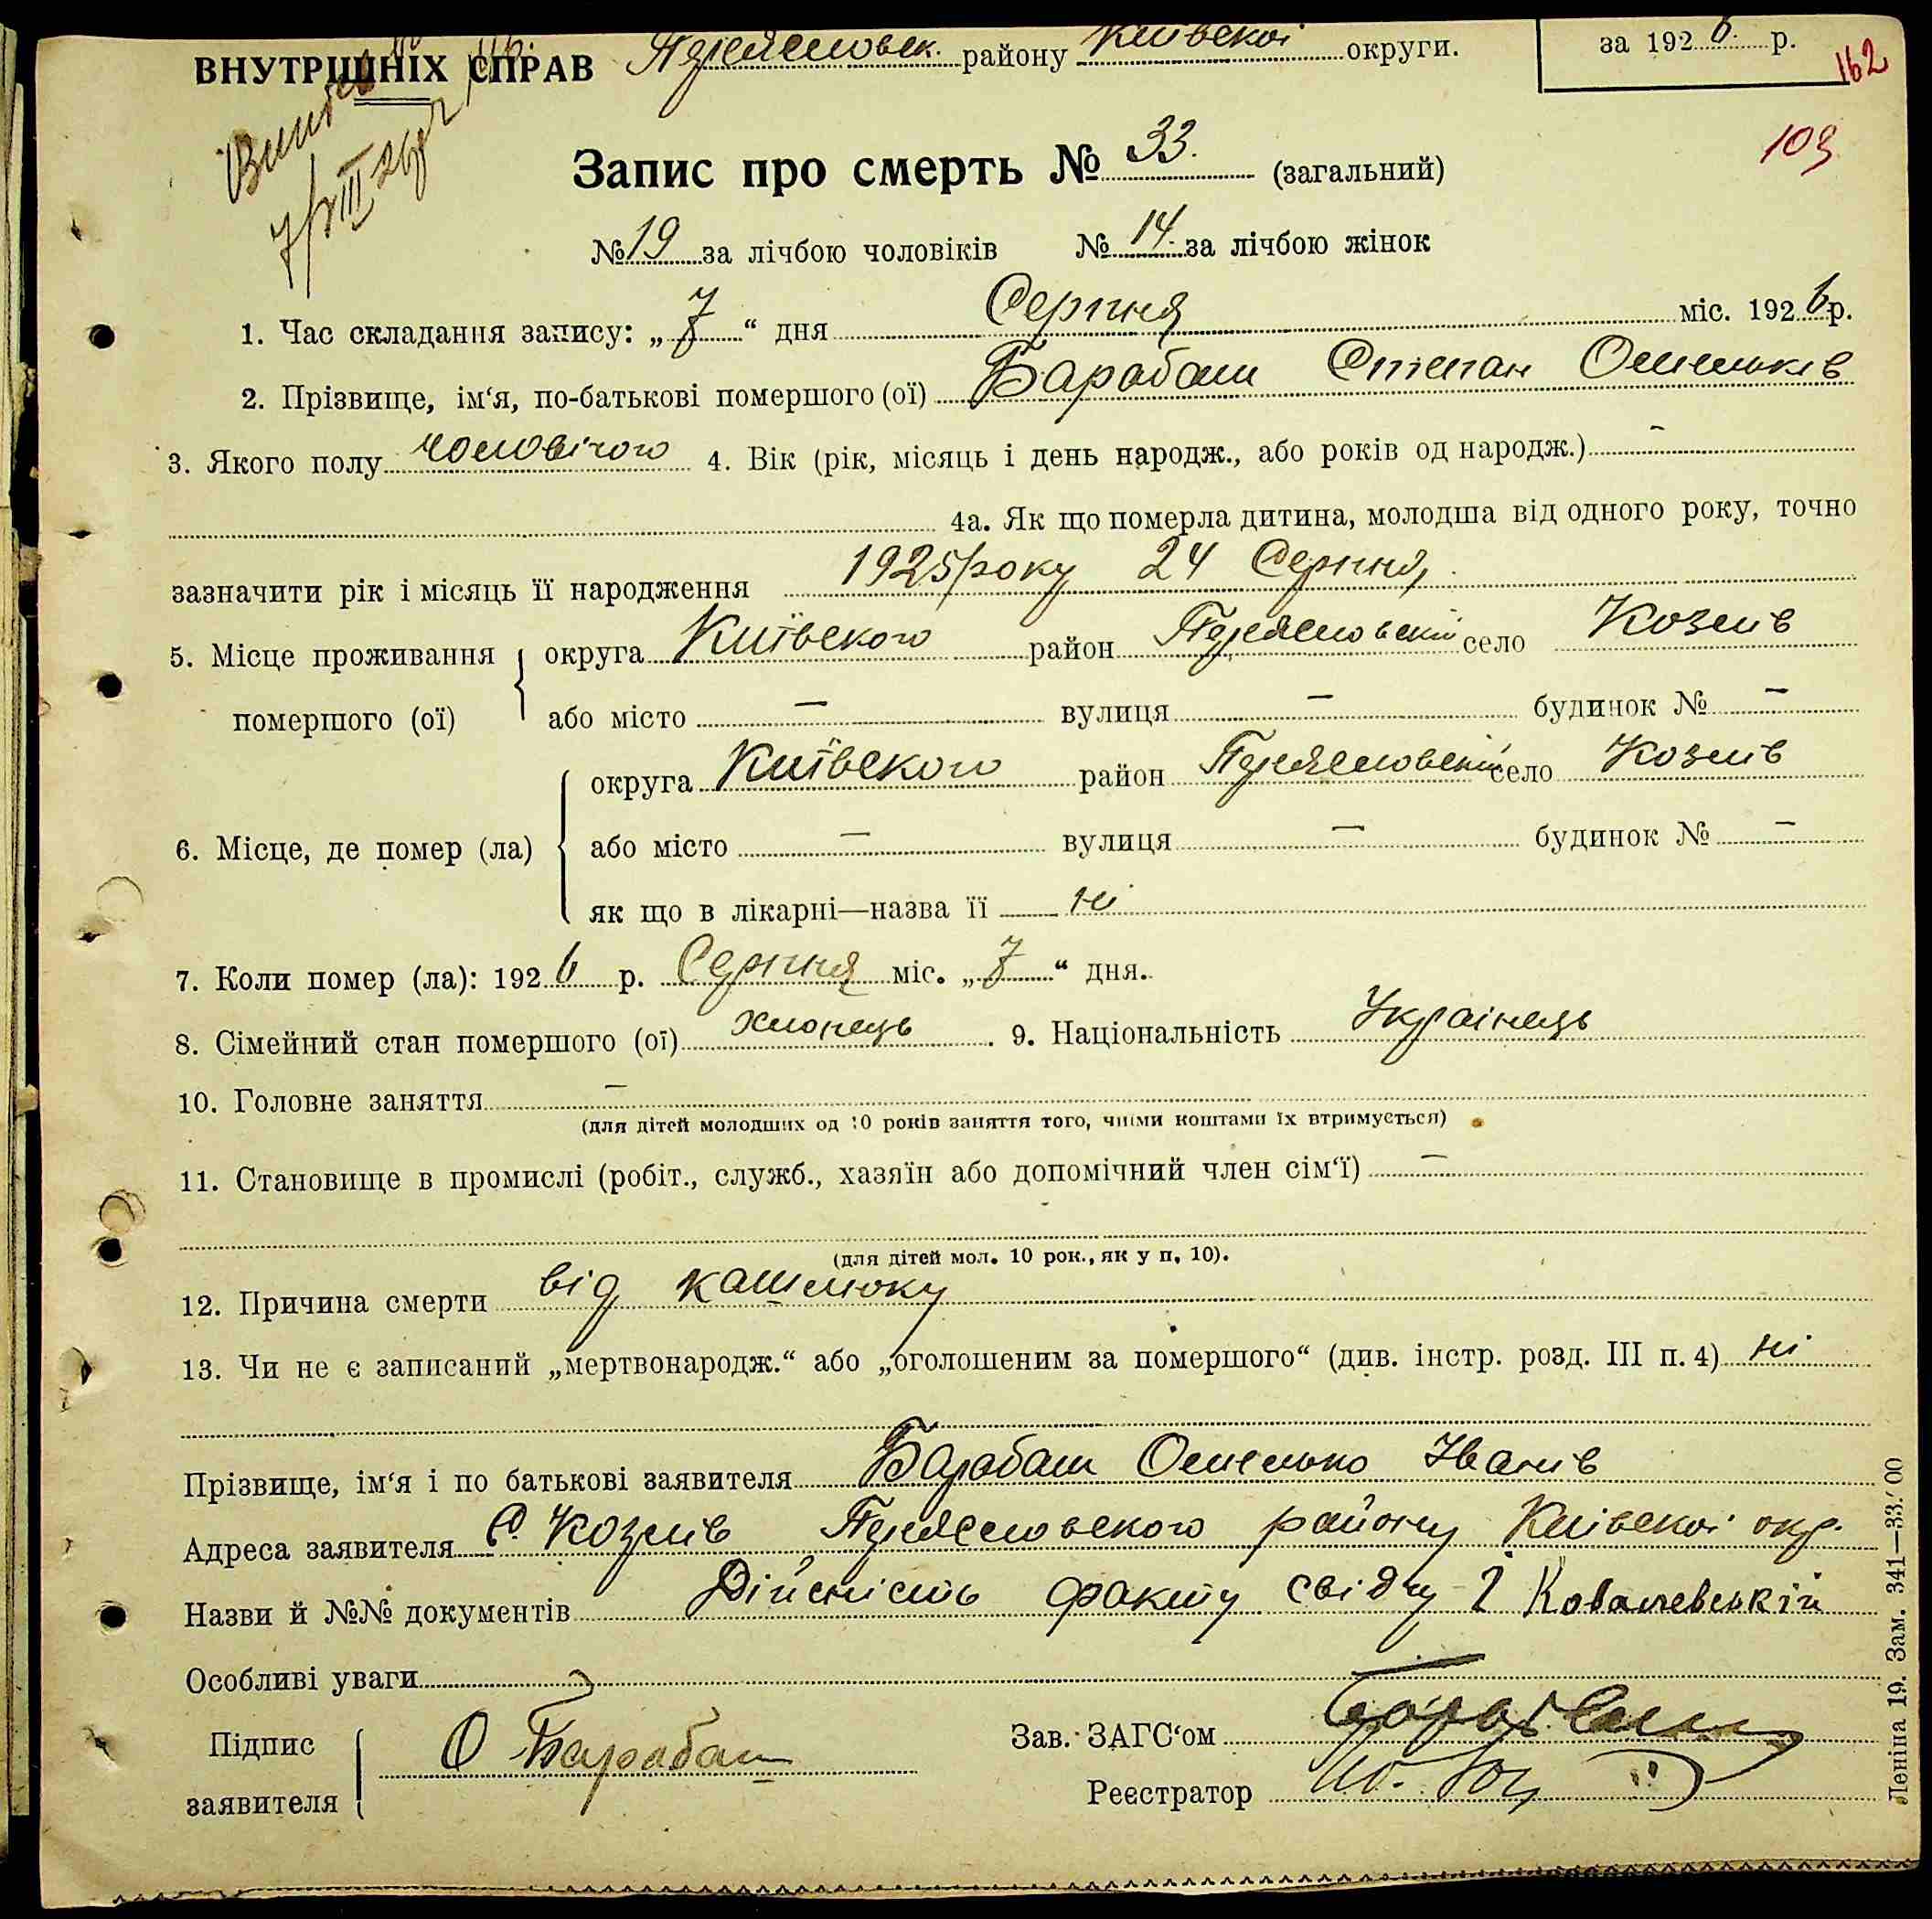 ВНУТРІШНІХ СПРАВ Переяславськ. району Київскої округи. за 1926 р.
162
103
7/VIII 26р
Запис про смерть № 33. (загальний)
№ 19 за лічбою чоловіків № 14. за лічбою жінок
1. Час складання запису: „7“ дня Серпня міс. 1926 р.
2. Прізвище, ім‘я, по-батькові помершого (ої) Барабаш Степан Омельків
3. Якого полу чоловічого 4. Вік (рік, місяць і день народж., або років од народж.) –
4а. Як що померла дитина, молодша від одного року, точно
зазначити рік і місяць її народження 1925 року 24 Серпня
5. Місце проживання округа Київского район Переясловский село Козлів
помершого (ої) або місто – вулиця – будинок № –
округа Київского район Переясловский село Козлів
6. Місце, де помер (ла) або місто – вулиця – будинок № –
як що в лікарні—назва її ні
7. Коли помер (ла): 1926 р. Серпня міс. „7“ дня.
8. Сімейний стан помершого (ої) хлопець. 9. Національність Українець
10. Головне заняття –
(для дітей молодших од 10 років заняття того, чиїми коштами їх втримується)
11. Становище в промислі (робіт., служб., хазяїн або допомічний член сім‘ї) –
(для дітей мол. 10 рок., як у п. 10).
12. Причина смерти від кашлюку
13. Чи не є записаний „мертвонародж.“ або „оголошеним за помершого“ (див. інстр. розд. III п. 4) ні
Прізвище, ім‘я і по батькові заявителя Барабаш Омелько Іванів
Адреса заявителя с. Козлів Переясловского району Київскоі окр.
Назви й №№ документів Дійсність факту свідчу І Ковалевській
Особливі уваги –
Підпис заявителя О Барабаш
Зав. ЗАГС‘ом
Реєстратор
Леніна 19. Зам. 341—33.′00